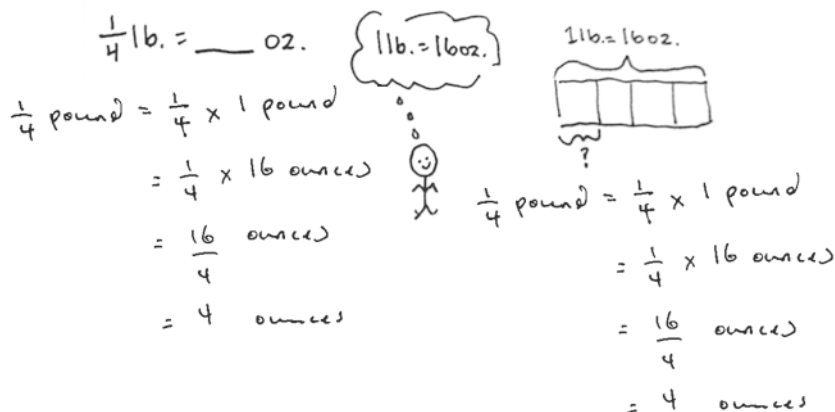 1/4 lb. = ___ oz.
1 lb. = 16 oz.
1 lb. = 16 oz.
1/4 pound = 1/4 × 1 pound
= 1/4 × 16 ounces
= 16/4 ounces
= 4 ounces
?
1/4 pound = 1/4 × 1 pound
= 1/4 × 16 ounces
= 16/4 ounces
= 4 ounces